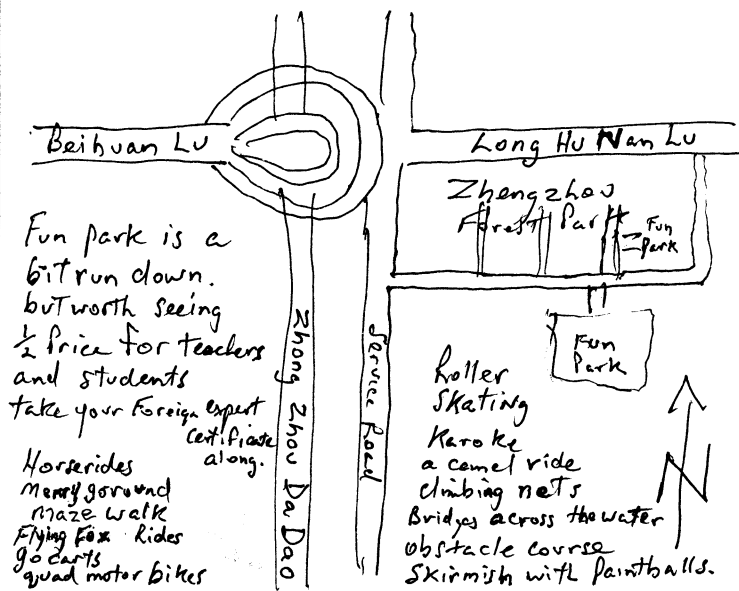 Beihuan Lu
Long Hu Nan Lu
Zhengzhou
Forest Park
Fun
Park
Fun park is a
bit run down.
but worth seeing
1/2 Price for teachers
and students
take your Foreign expert
certificate
along.
Horserides
Merry goround
maze walk
Flying Fox Rides
go carts
quad motor bikes
Zhong Zhou Da Dao
Service Road
Fun
Park
Roller
Skating
Karoke
a camel ride
climbing nets
Bridges across the water
obstacle course
Skirmish with Paintballs.
N